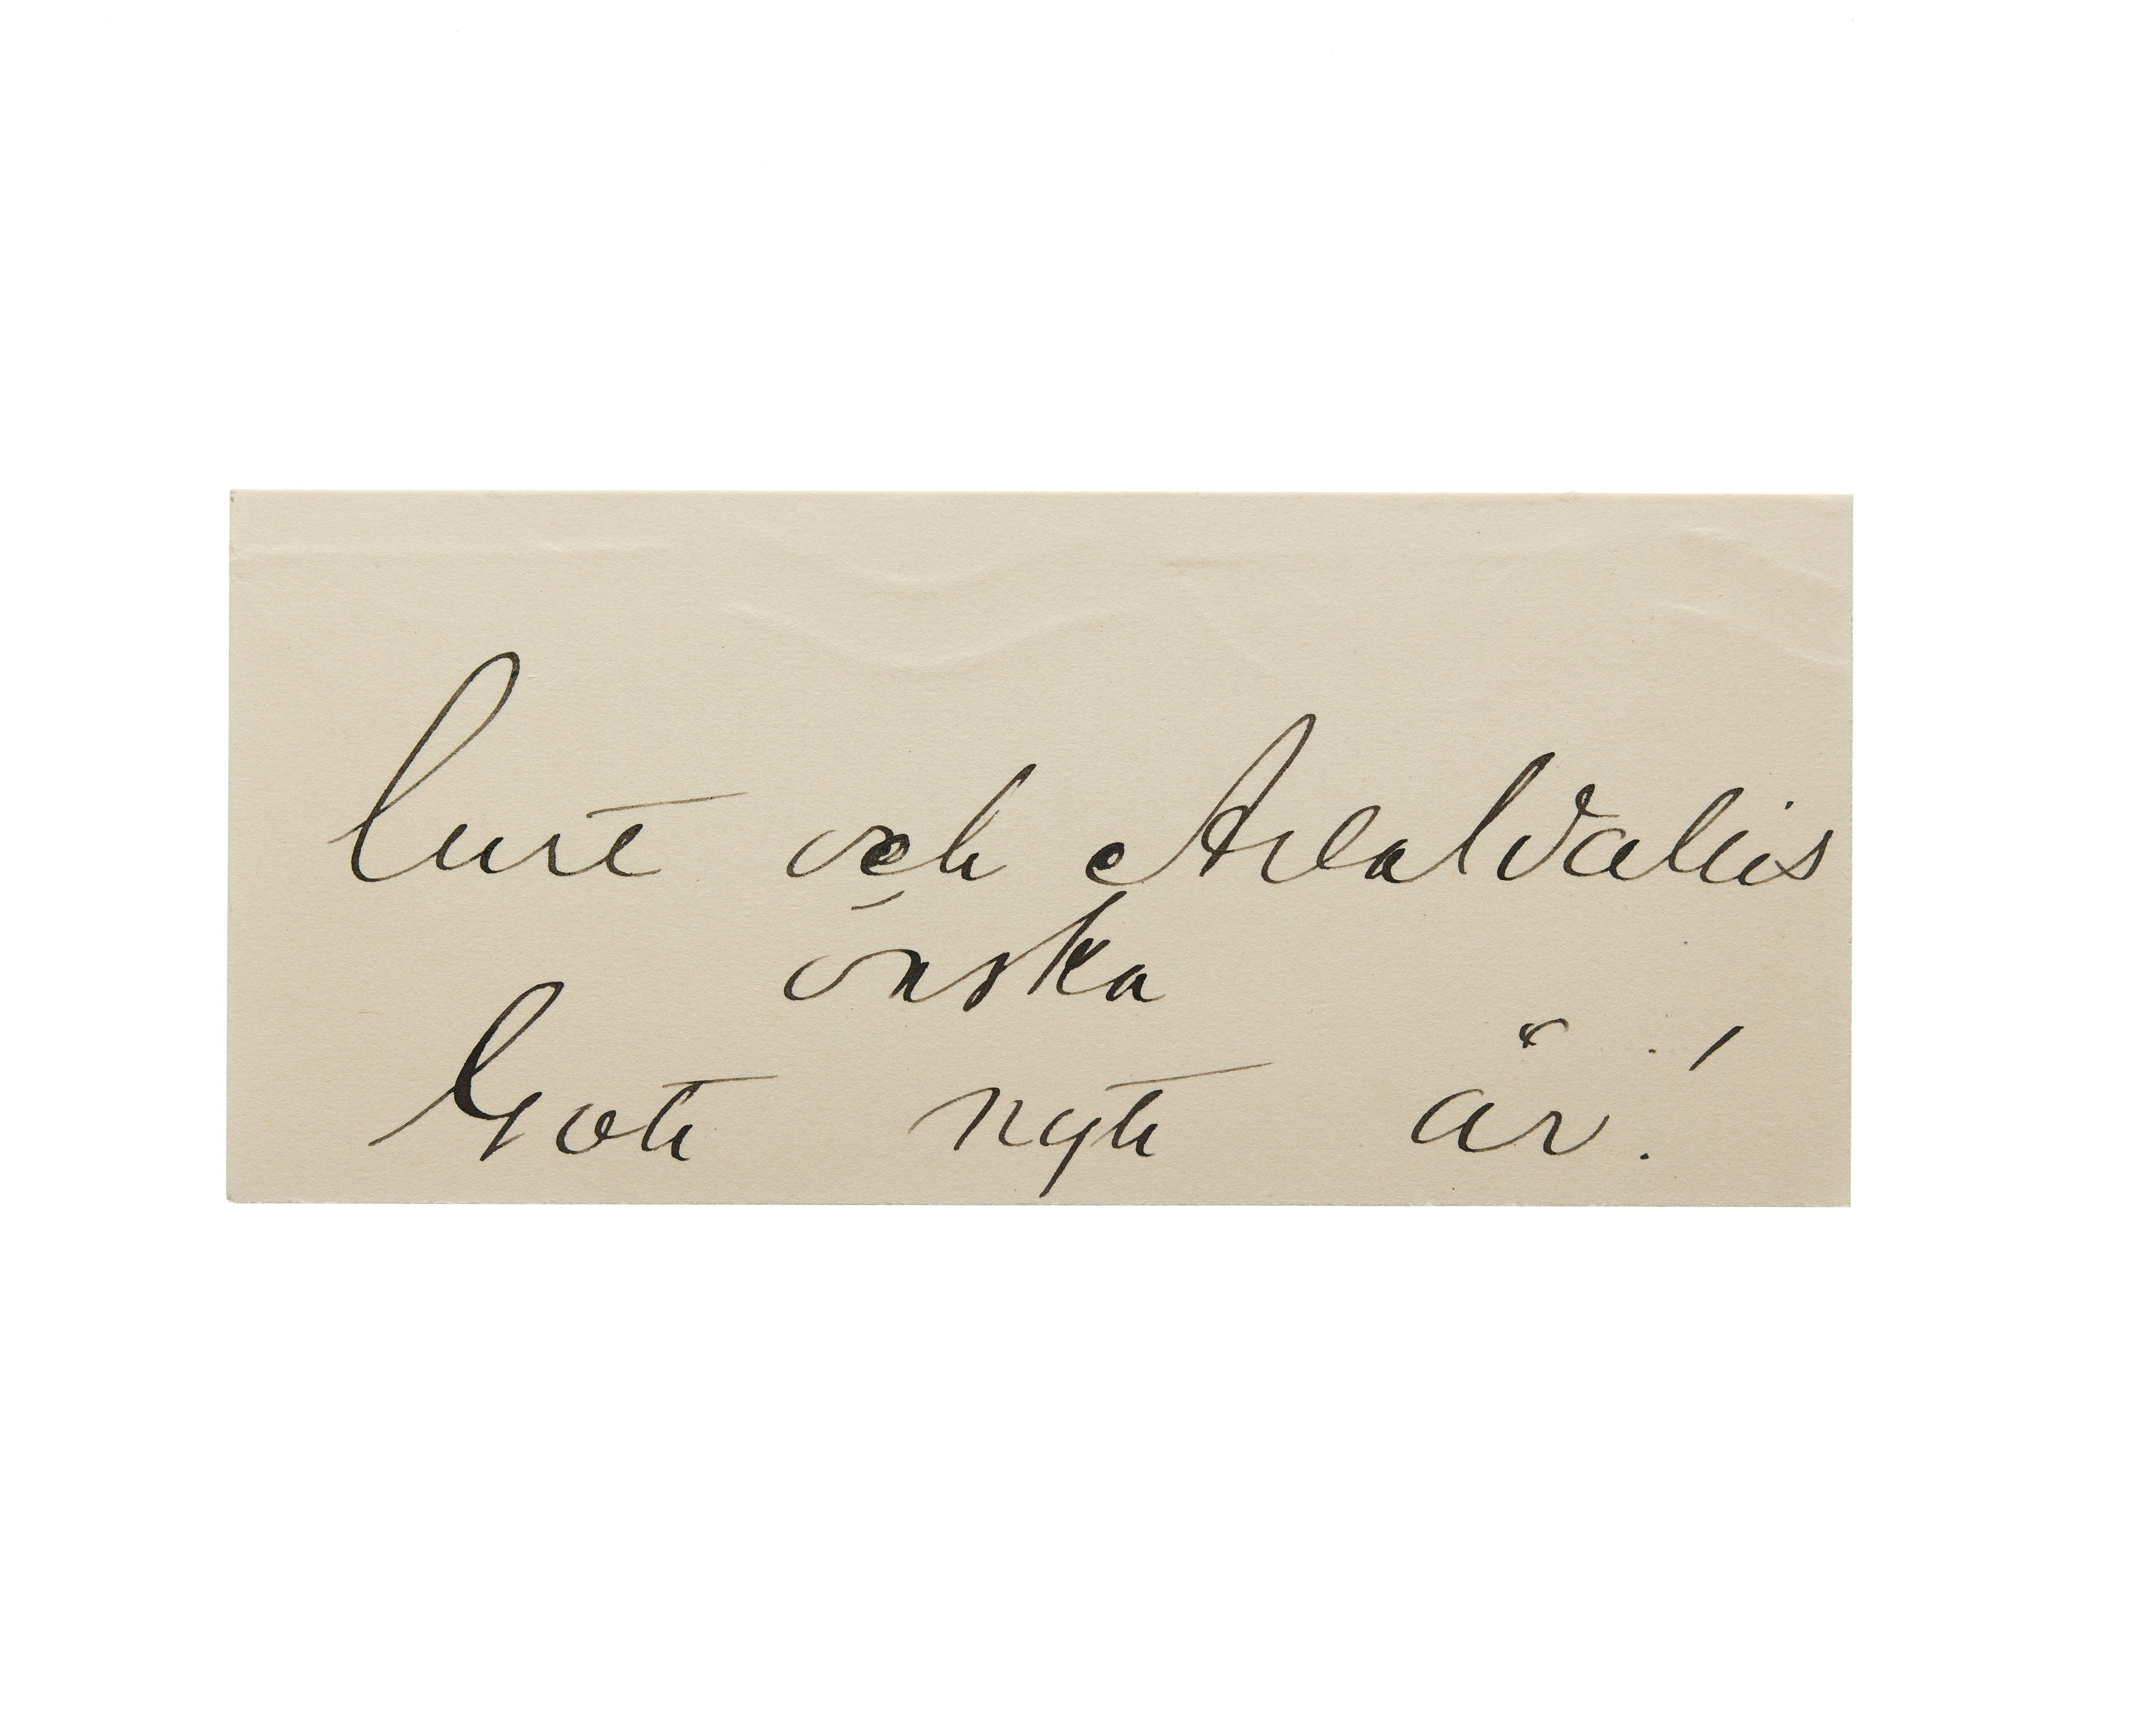 Curt och Wallis
önska
Gott nytt år!